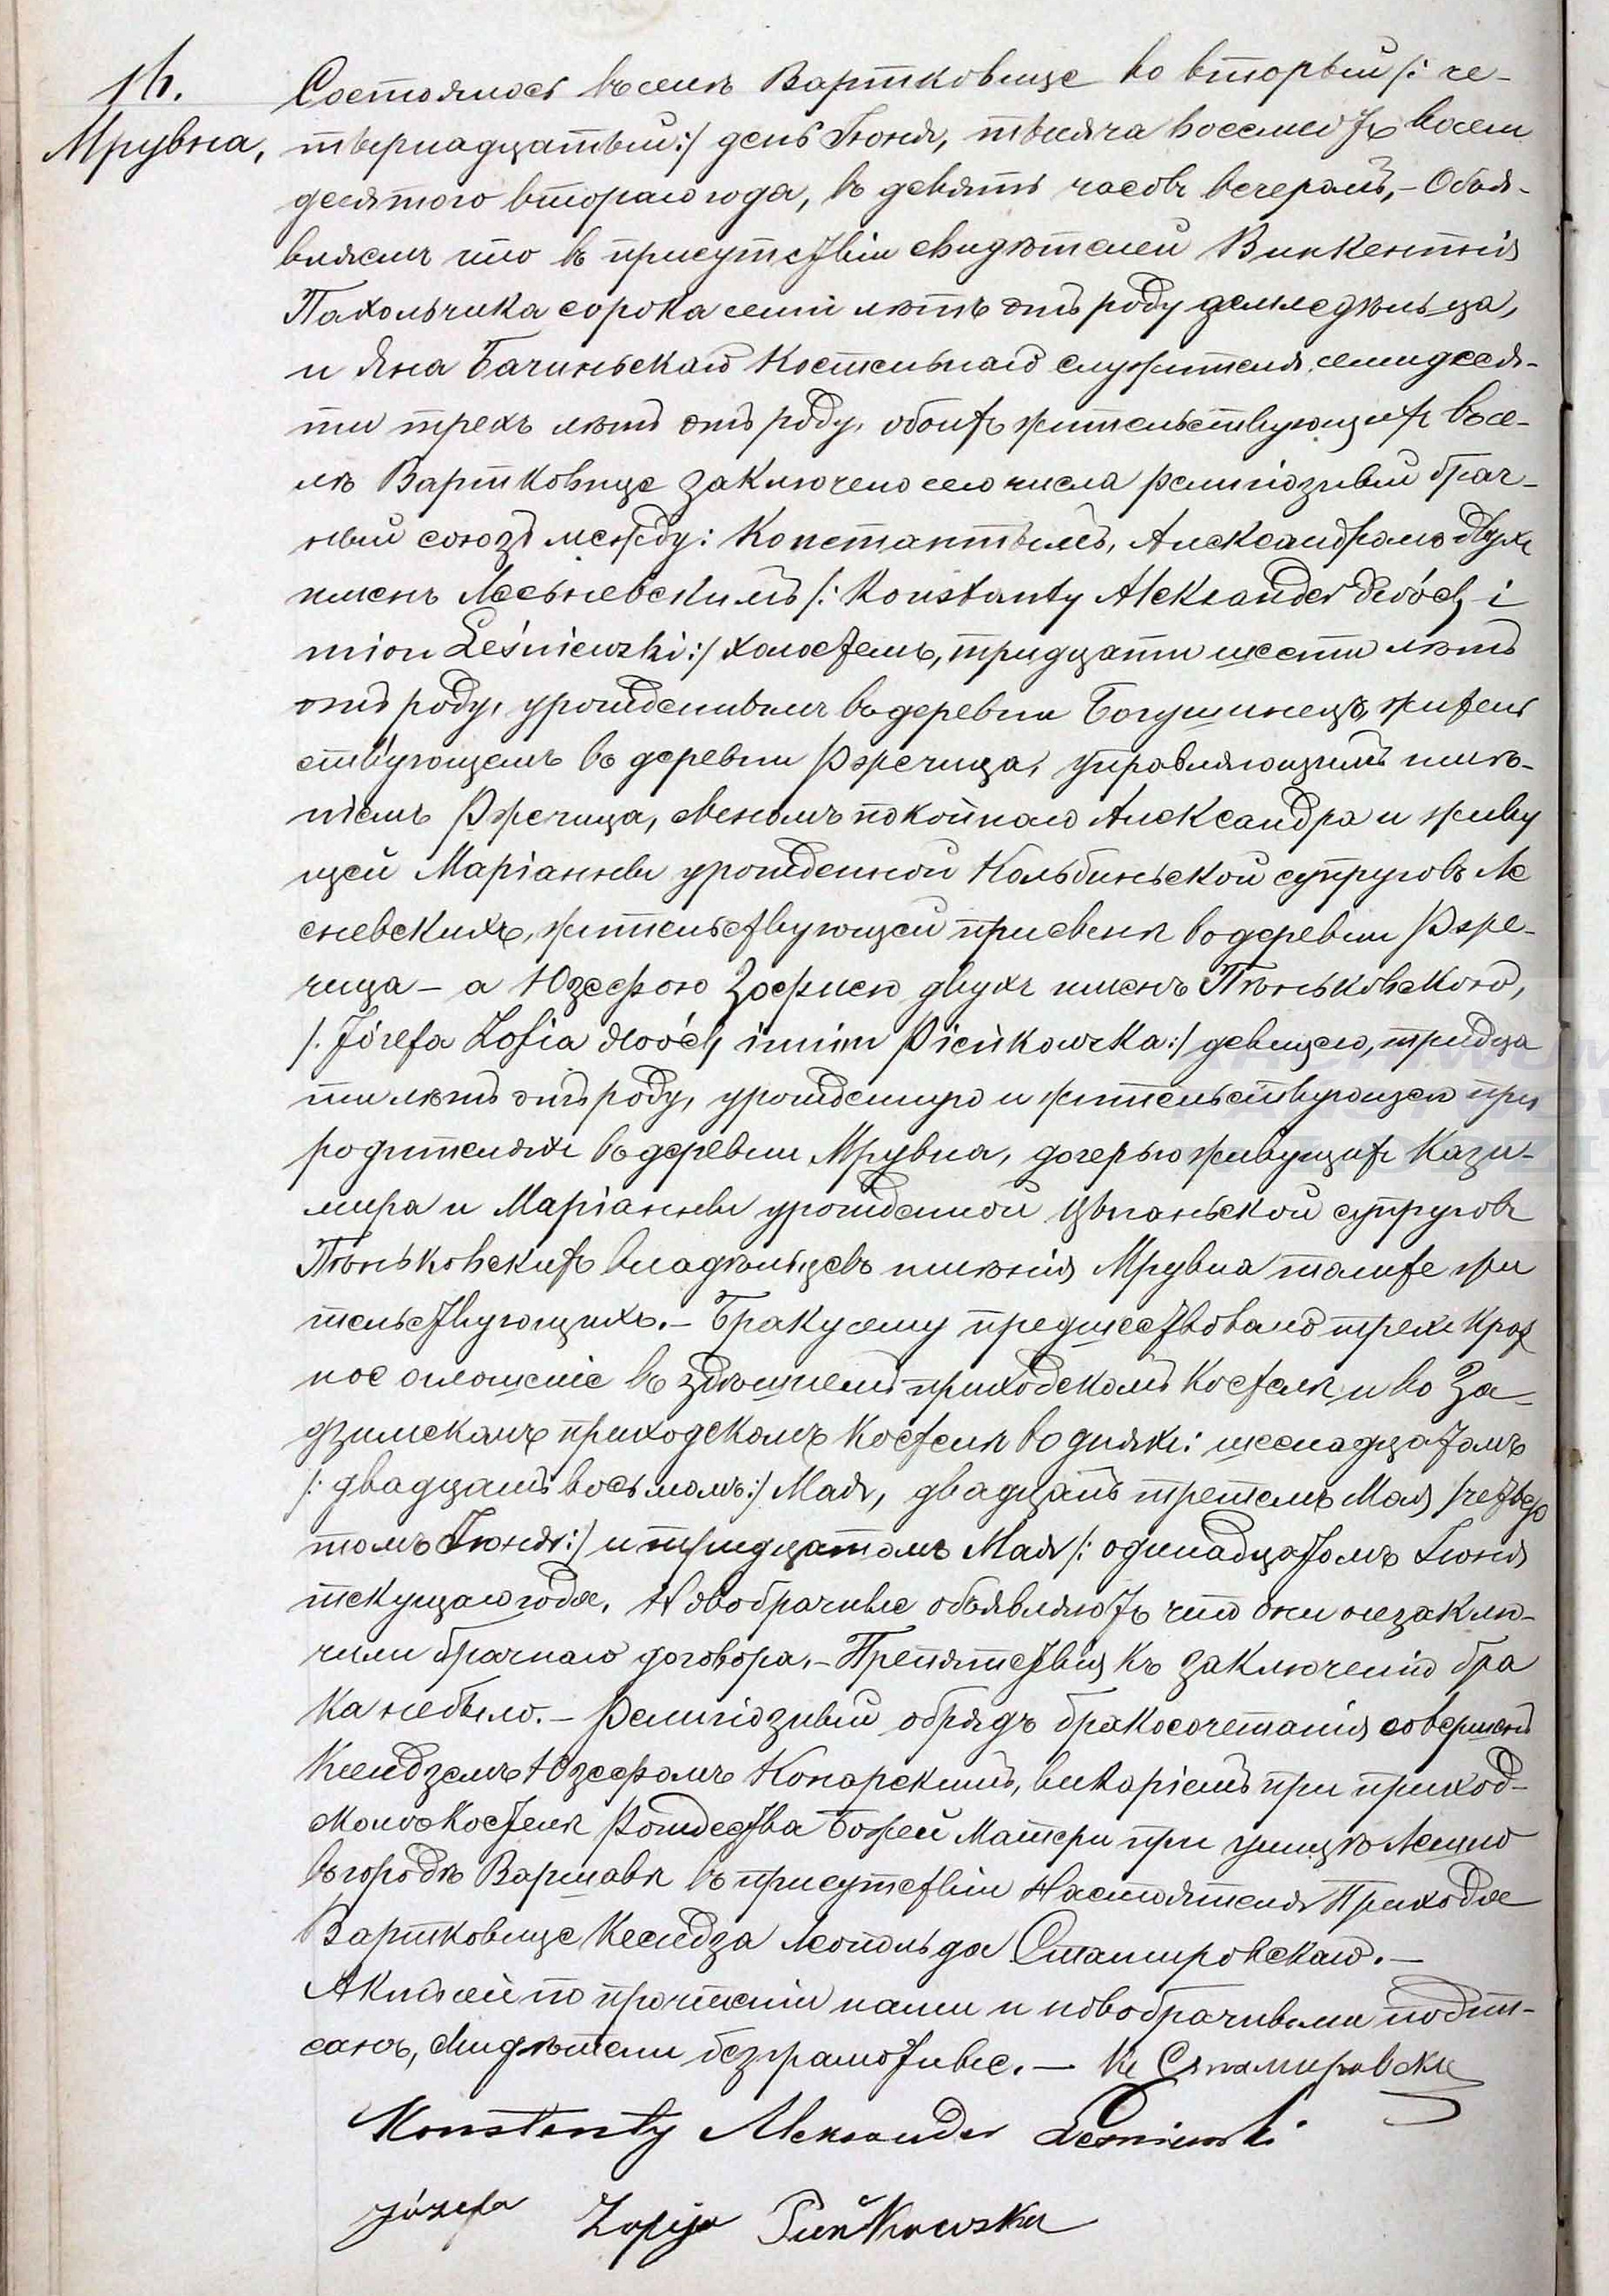 16.
Мрувна,
Состоялось въ селѣ Вартковице во вторый /: че-
тырнадцатый :/ день Іюня, тысяча восемсотъ восем
десятого второго года, въ девять часовъ вечеромъ, – Объя-
вляемъ что въ присутствіи свидѣтелей Викентія
Пахольчика сорока семи лѣтъ отъ роду земледѣльца,
и Яна Бачиньскаго костельнаго служителя семидеся-
ти трехъ лѣтъ отъ роду, обоихъ жительствующихъ въ се-
лѣ Вартковице заключено сего числа религіозный брач-
ный союзъ между: Константымъ, Александромъ двухъ
именъ Лесьневскимъ /: Konstanty Aleksander dwóch i
mion Leśniewski :/ холостемъ, тридцати шести лѣтъ
отъ роду, урожденнымъ въ деревни Богушинецъ, житель
ствующемъ въ деревни Ржечица, управляющимъ имѣ-
ніемъ Ржечица, сыномъ покойнаго Александра и живу
щей Маріанны урожденной Кольбиньской супруговъ Ле
сневскихъ, жительствующей при сынѣ въ деревни Рже-
чица – а Юзефою Зофіею двухъ именъ Пѣньковскою,
/: Józefa Zofia dwóch imion Pieńkowska :/ девицею, тридца
ти лѣтъ отъ роду, урожденную и жительствующею при
родителяхъ въ деревни Мрувна, дочерью живущихъ Кази-
мира и Маріанны урожденной Цыганьской супруговъ
Пѣньковскихъ владѣльцевъ имѣнія Мрувна тамже жи
тельствующихъ. – Браку сему предшествовало трехкрат
ное оглошеніе въ здѣшнемъ приходскомъ костелѣ и во За-
дзимскомъ приходскомъ костелѣ во дняхъ: шеснадцатомъ
/: двадцать восьмомъ :/ Мая, двадцать третемъ Мая /: четвер
томъ Іюня :/ и тридцатомъ Мая /: одинадцатомъ Іюня
текущаго года, Новобрачные объявляютъ что они незаклю-
чили брачнаго договора. – Препятствія къ заключенію бра
ка небыло. – Религіозный обрядъ бракосочетанія совершенъ
Ксендземъ Юзефомъ Конарскимъ, викаріемъ при приход-
скомъ костелѣ Рождества Божей Матери при улицѣ Лешно
въ городѣ Варшавѣ въ присутствіи Настоятеля Прихода
Вартковице Ксендза Леопольда Стамировскаго. –
Актъ сей по прочтеніи нами и новобрачными подпи-
санъ, свидѣтели безграмотные. – Кс Стамировски
Konstanty Aleksander Leśniewski
Józefa Zofija Pieńkowska